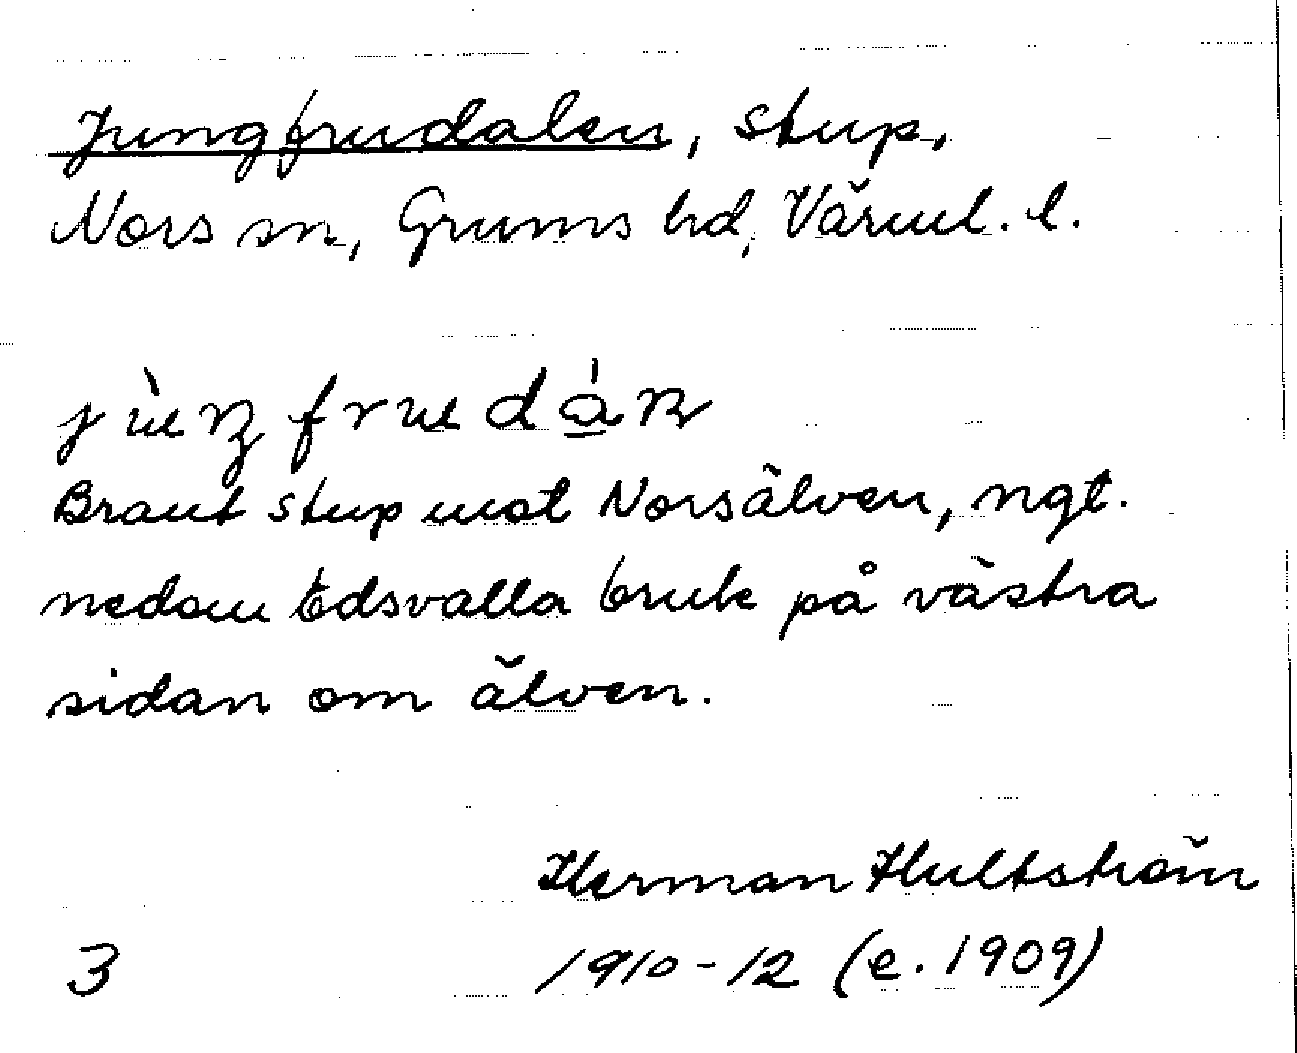 Jungfrudalen, stup,
Nors sn, Grums hd, Värml. l.
jùŋfrudàn
Brant stup mot Norsälven, ngt.
nedom Edsvalla bruk på västra
sidan om älven.
Herman Hultström
3 1910-12 (e. 1909)